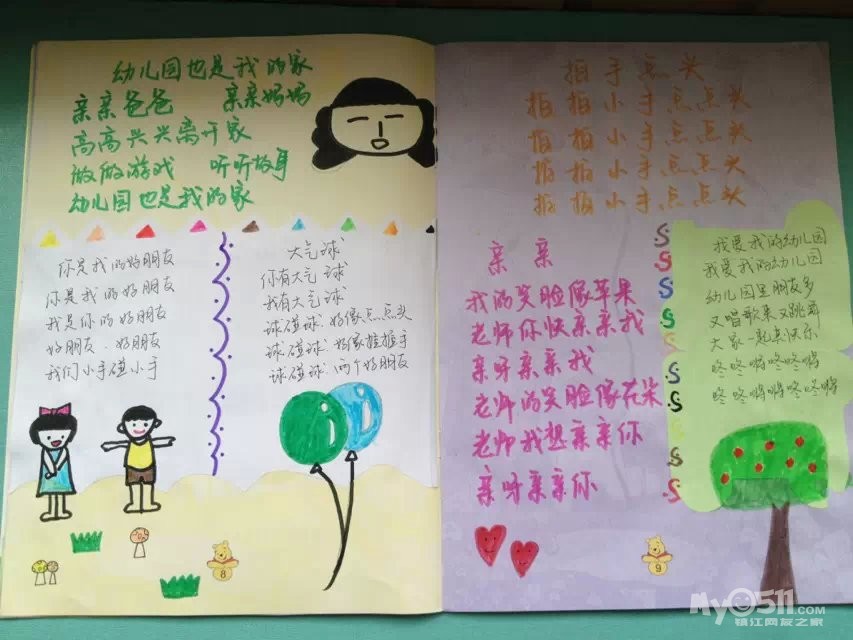 幼儿园也是我的家
亲亲爸爸 亲亲妈妈
高高兴兴离开家
做做游戏 听听故事
幼儿园也是我的家
你是我的好朋友
你是我的好朋友
我是你的好朋友
好朋友、好朋友
我们小手碰小手
大气球
你有大气球
我有大气球
球碰球 好像点点头
球碰球 好像握握手
球碰球 两个好朋友
8
拍手点头
拍拍小手点点头
拍拍小手点点头
拍拍小手点点头
拍拍小手点点头
亲亲
我的笑脸像苹果
老师你快亲亲我
亲呀亲亲我
老师的笑脸像花朵
老师我想亲亲你
亲呀亲亲你
我爱我的幼儿园
我爱我的幼儿园
幼儿园里朋友多
又唱歌来又跳舞
大家一起真快乐
咚咚啪啪咚咚啪
咚咚啪啪咚咚啪
9
My0511.com
镇江网友之家